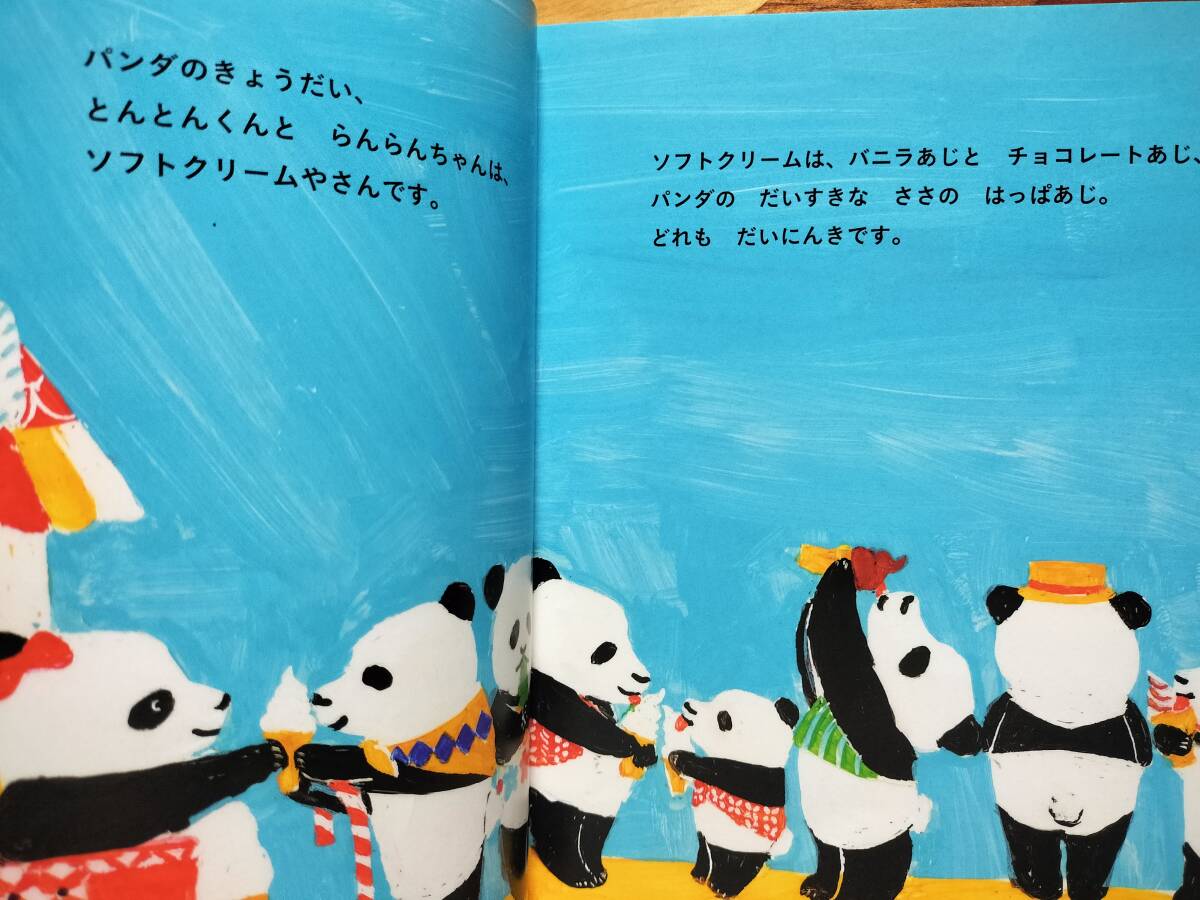 パンダのきょうだい、
とんとんくんと　らんらんちゃんは、
ソフトクリームやさんです。
ソフトクリームは、バニラあじと　チョコレートあじ、
パンダの　だいすきな　ささの　はっぱあじ。
どれも　だいにんきです。